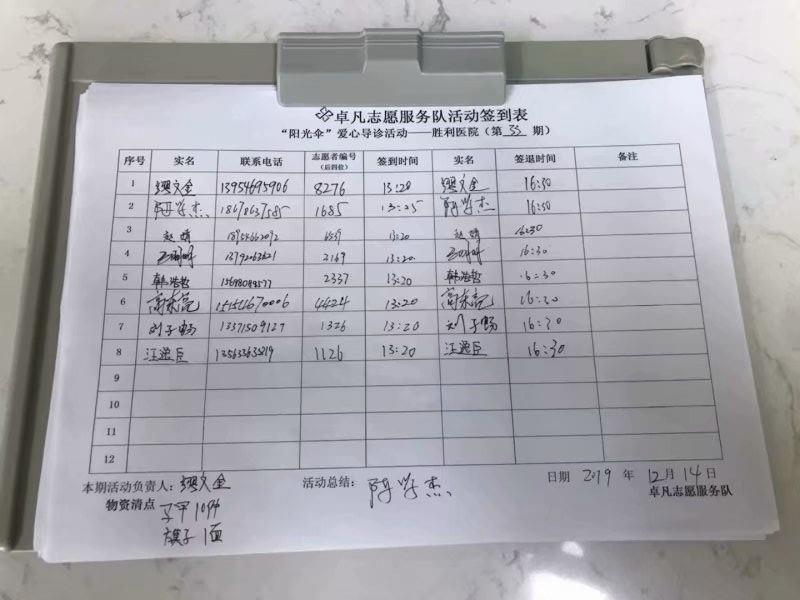 卓凡志愿服务队活动签到表
“阳光伞”爱心导诊活动——胜利医院（第 35 期）
序号 实名 联系电话 志愿者编号（后四位） 签到时间 实名 签退时间 备注
1 文金 13954695906 8276 13:20 文金 16:30
2 学杰 1685 13:25 学杰 16:30
3 赵 13:20 赵 16:30
4 2169 13:20 16:30
5 韩浩哲 2337 13:20 韩浩哲 16:30
6 15154670006 4424 13:20 16:30
7 刘子畅 13371509127 1326 13:20 刘子畅 16:30
8 汪逸臣 13563363819 1126 13:20 汪逸臣 16:30
9
10
11
12
本期活动负责人： 文金 活动总结： 学杰 日期 2019 年 12 月 14 日
物资清点 卓凡志愿服务队
马甲 10件
旗子 1面